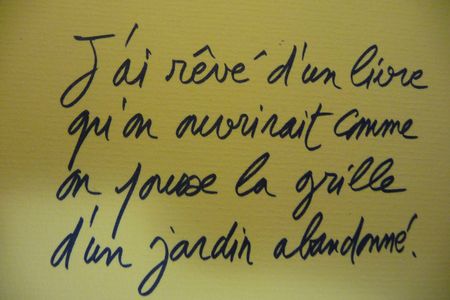 J'ai rêvé d'un livre
qu'on ouvrirait comme
on pousse la grille
d'un jardin abandonné.